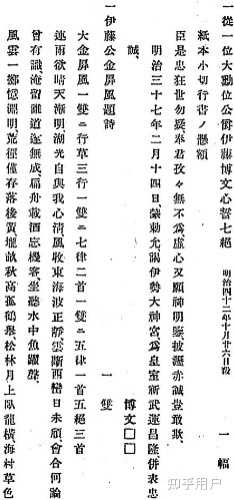 一從一位大勳位公爵伊藤博文心誓七絕 明治四十二年十月廿六日歿 一幅
紙本小切行書ノ懸額
臣是忠狂世勿疑。奉君孜々無不為。虛心又願神明鑒。披瀝赤誠豈敢欺。
明治三十七年二月十四日。蒙勅允。謁伊勢大神宮。為皇室新武運昌隆併表忠
誠。 博文□□
一伊藤公金屏風題詩 一雙
大金屏風一雙ニ行草三行一雙ニ七律二首一雙ニ五律一首五絕三首
連雨欲晴天漸明。湖光自與我心清。風收東海波正靜。雲斷西巒日未傾。會合何論
曾有識。淹留雖道遂無成。扁舟載酒忘機客。坐聽水中魚躍聲。
風雲一鄉憶淵明。荒徑僅存落後質。壠畝秋高孤鶴舉。松林月上臥龍橫。海村草色
知乎用户